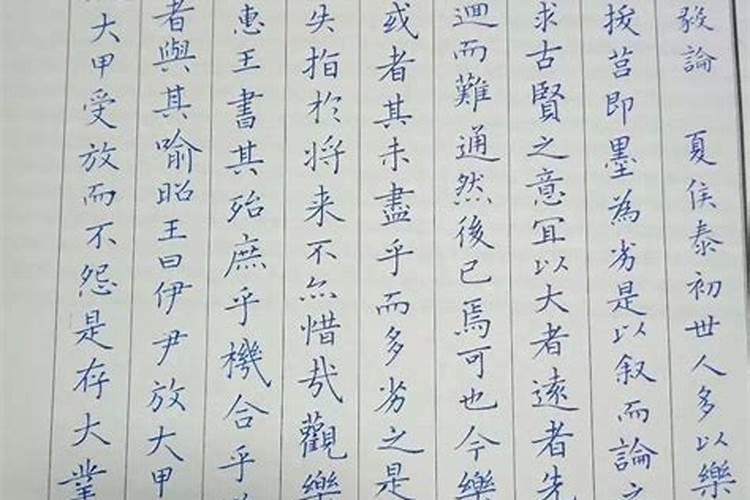 毅論 夏侯泰初世人多以樂
拔莒即墨為劣是以叙而論之
求古賢之意宜以大者遠者先
迴而難通然後已焉可也今樂
或者其未盡乎而多劣之是
失指於将来不亦惜哉觀樂
惠王書其殆庶乎機合乎
者與其喻昭王曰伊尹放大甲
大甲受放而不怨是存大業